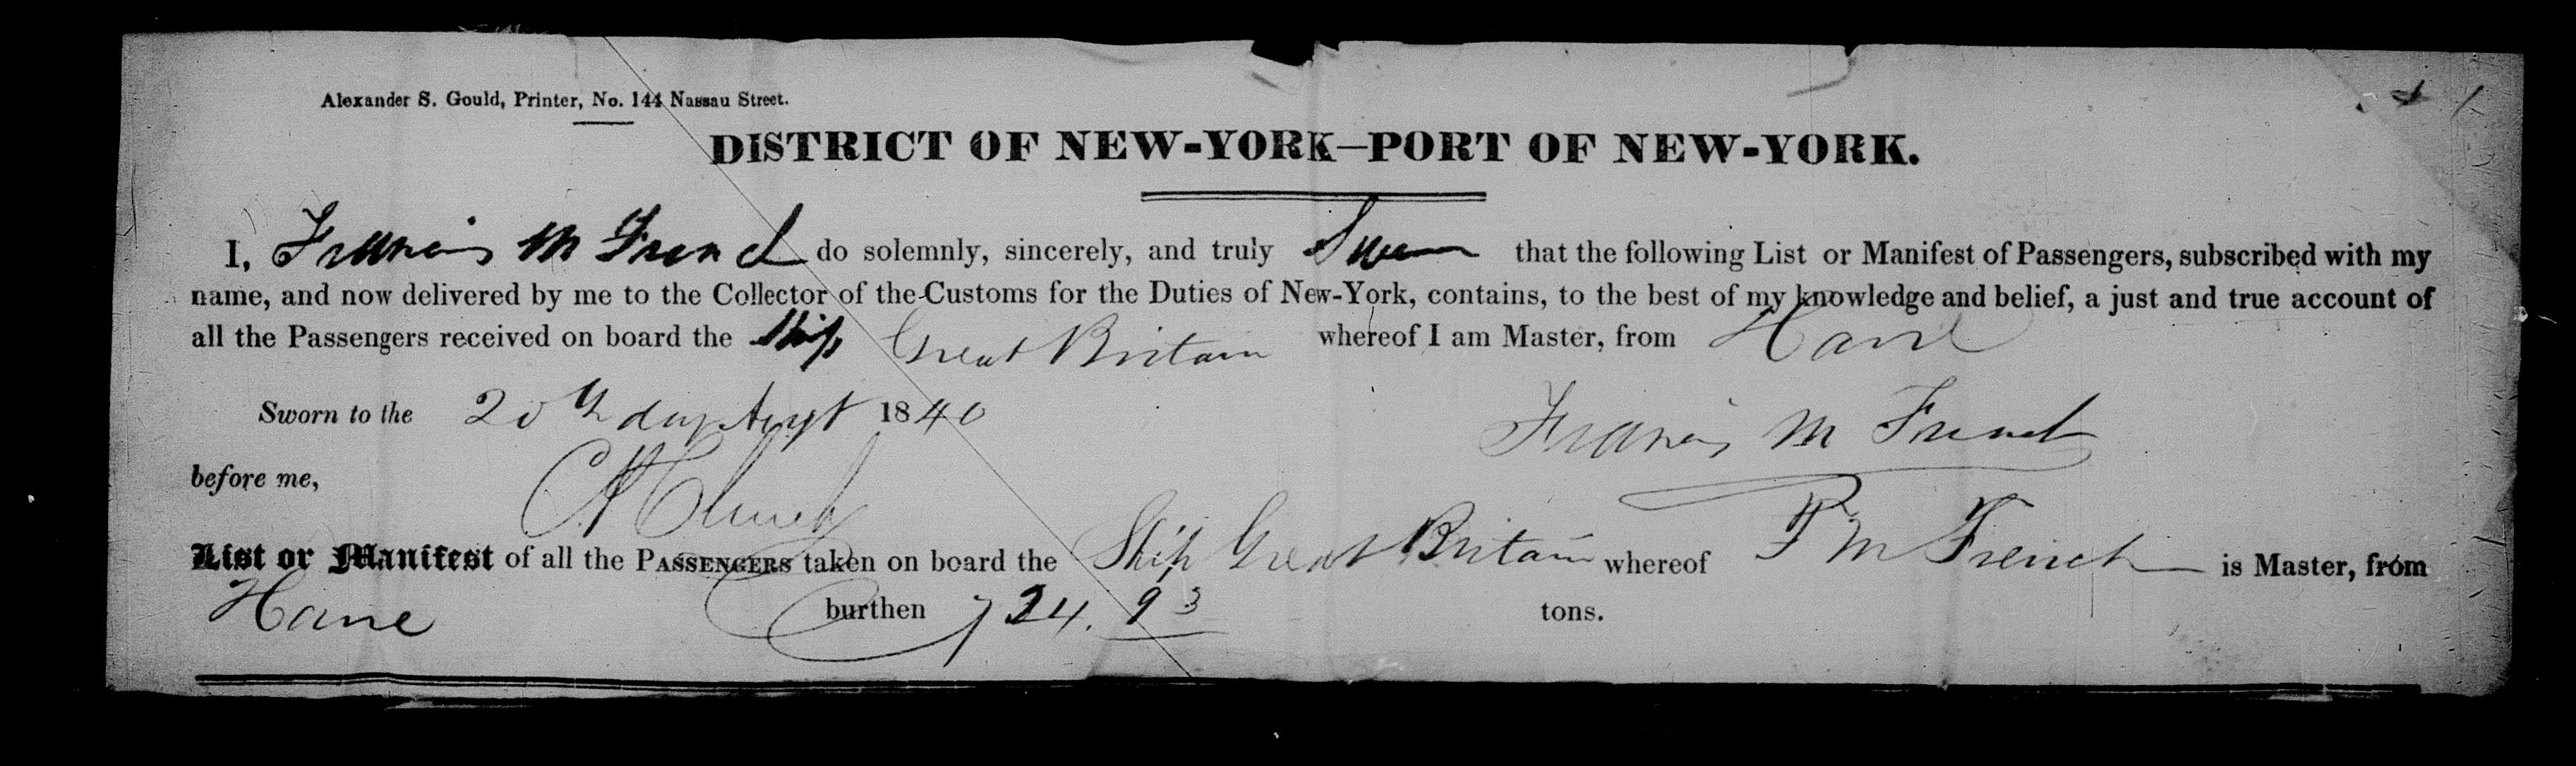 Alexander S. Gould, Printer, No. 144 Nassau Street.
DISTRICT OF NEW-YORK—PORT OF NEW-YORK.
I, Francis M French do solemnly, sincerely, and truly Swear that the following List or Manifest of Passengers, subscribed with my
name, and now delivered by me to the Collector of the Customs for the Duties of New-York, contains, to the best of my knowledge and belief, a just and true account of
all the Passengers received on board the Ship Great Britain whereof I am Master, from Havre
Sworn to the 20th day Augt 1840
Francis M French
before me,
List or Manifest of all the PASSENGERS taken on board the Ship Great Britain whereof F M French is Master, from
Havre burthen 724. 93 tons.